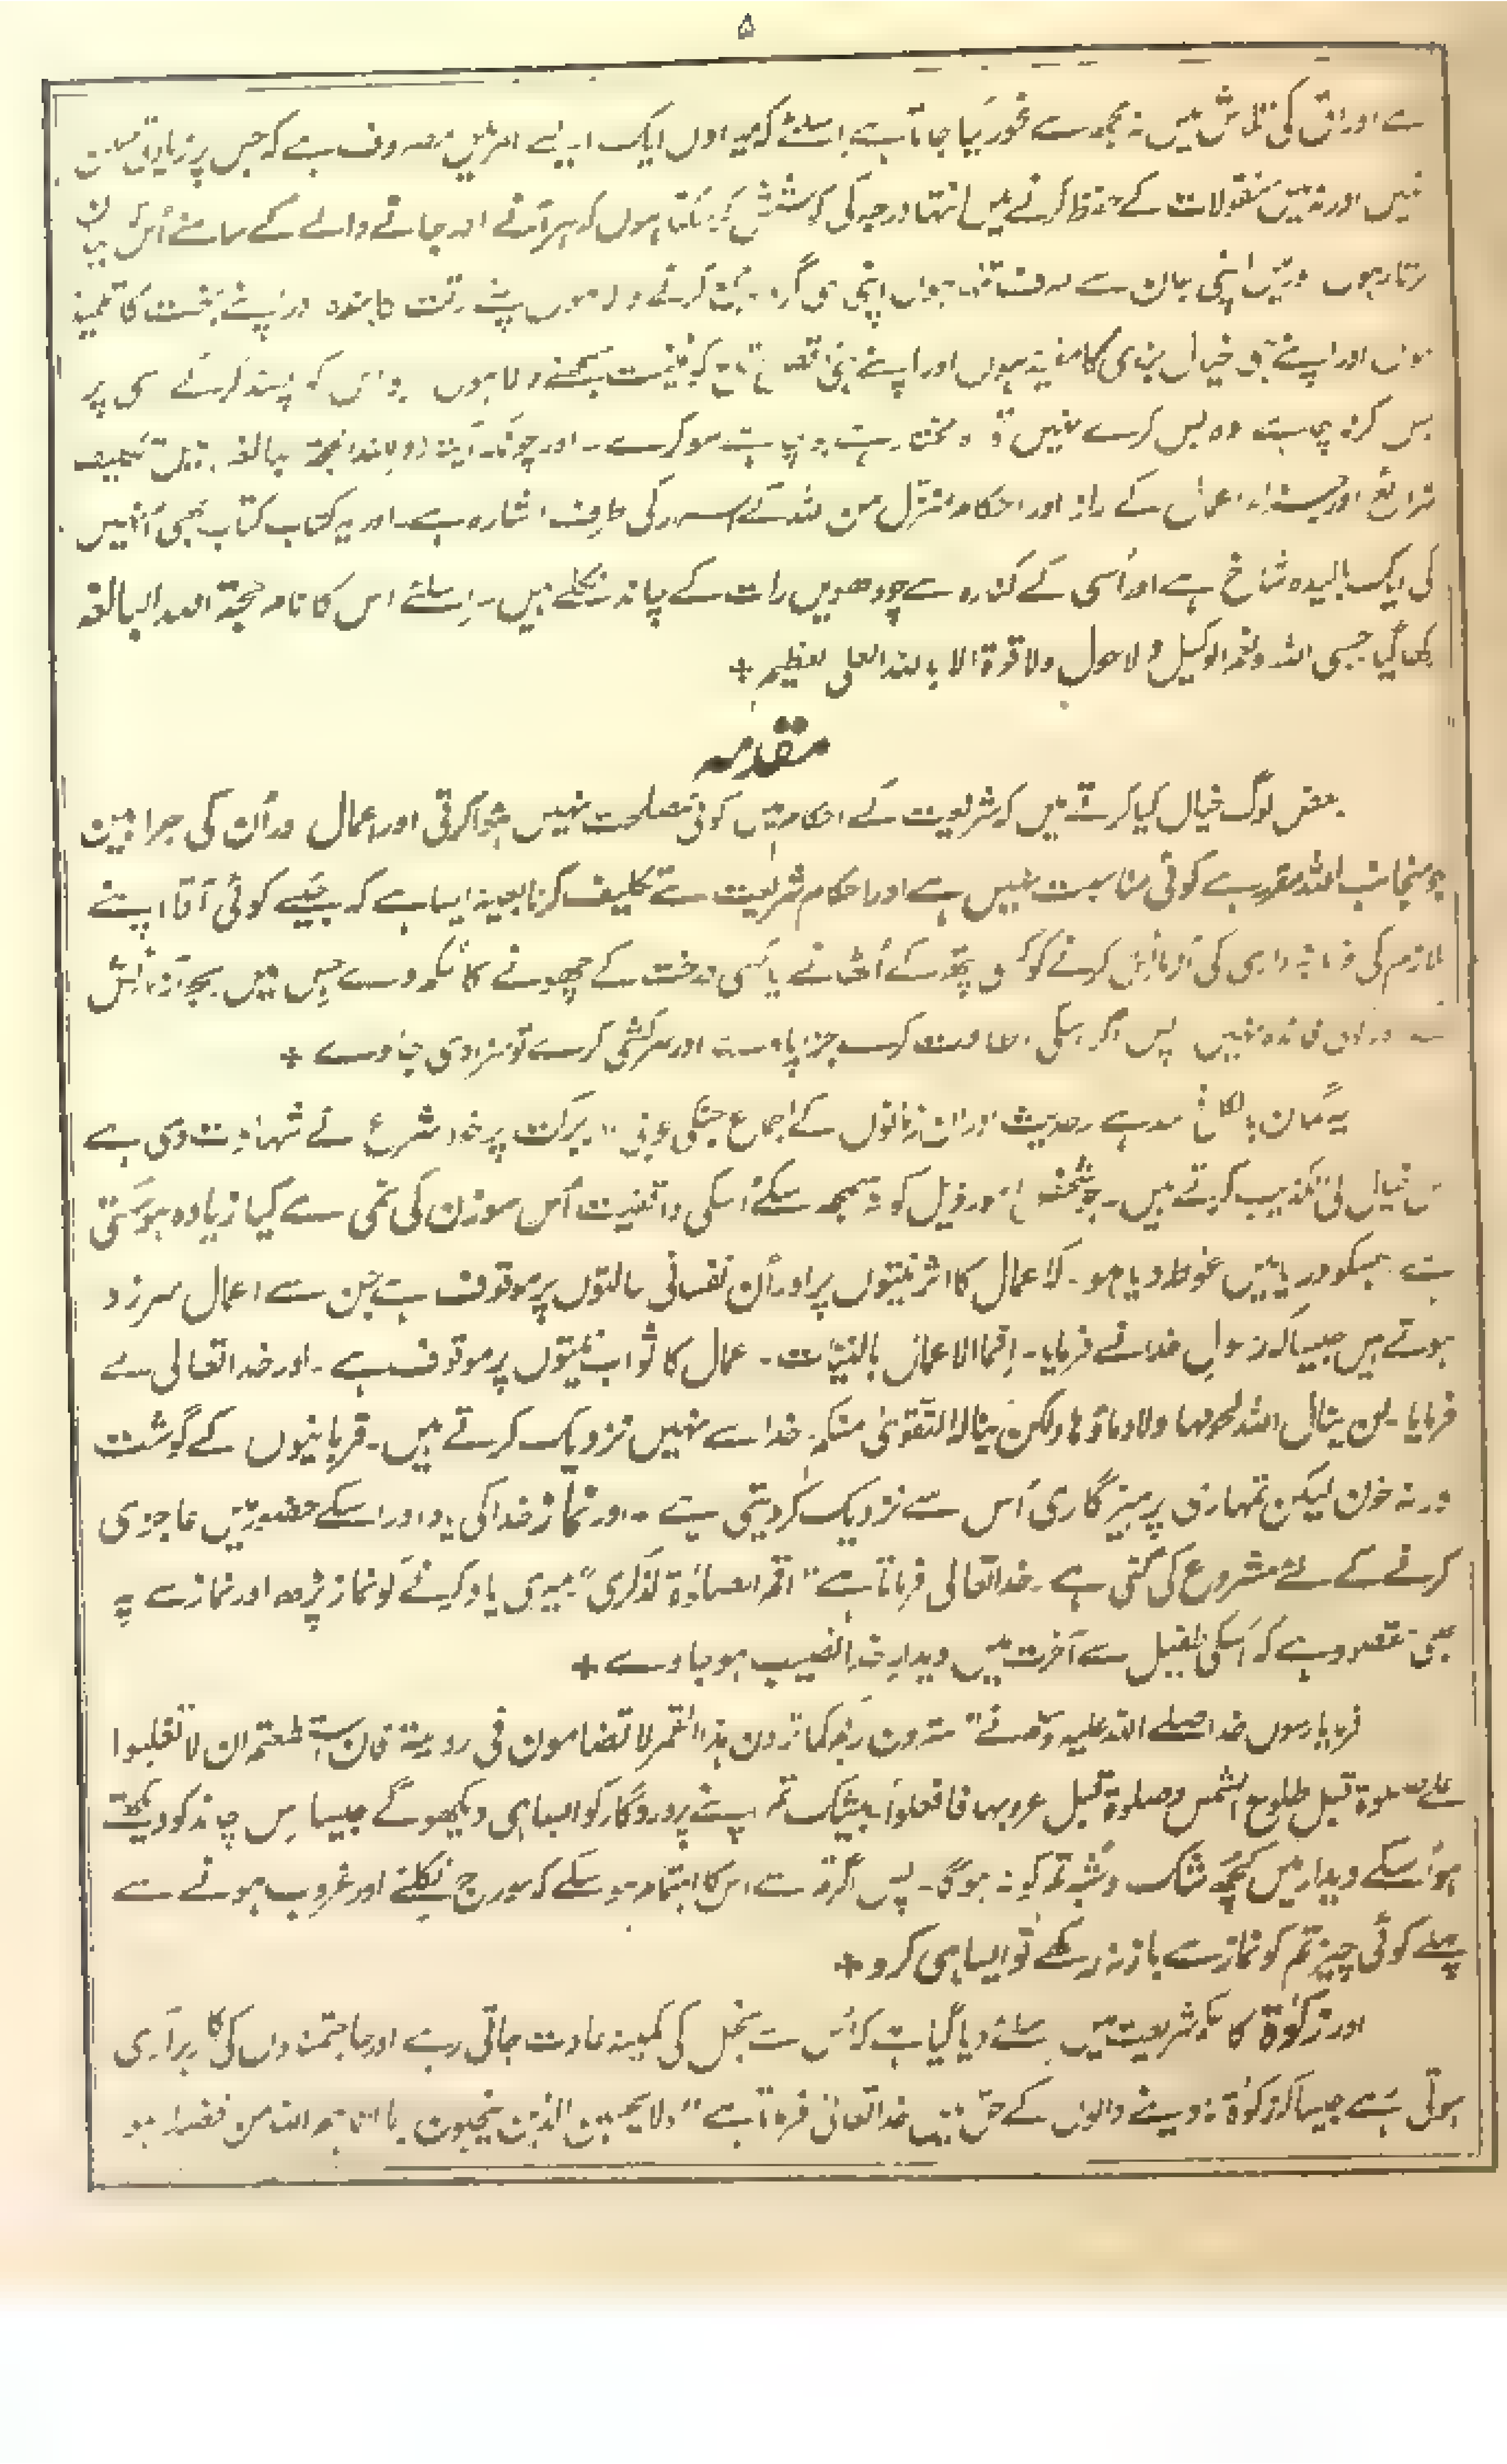 ۵
سے اوراق کی تلاش میں نہ مجھ سے غور کیا جاتا ہے اسلئے کہ میرا دل ایک ایسے امر میں مصروف ہے کہ جس پر زیادتی ممکن
نہیں اور نہ میں منقولات کے حفظ کرنے میں انتہا درجہ کی کوشش کر سکتا ہوں کہ ہر آنے اور جانے والے کے سامنے اُس کا بیان
کرتا رہوں اور میں اپنی جان سے ہوں اپنی ہی کرنے والا ہوں اپنے وقت کا بندہ اور اپنے بخت کا تلمیذ
ہوں اور اپنے ہی خیال بندی کا ہوں اور اپنے ہی کو غنیمت سمجھنے والا ہوں کو پسند کر کے اسی پر
بس کرنا چاہے وہ بس کرے نہیں تو وہ مختار ہے جو چاہے سو کرے۔ اور چونکہ آیت البالغہ میں تکلیف
شرائع اور جزاء اعمال کے راز اور احکام منزل من اللہ کے اسرار کی طرف اشارہ ہے۔ اور یہ کتاب بھی اُنہیں
کی ایک بالیدہ شاخ ہے اور اُسی کے کنارہ سے چودھویں رات کے چاند نکلے ہیں۔ اسلئے اس کا نام حجۃ اللہ البالغہ
رکھا گیا حسبی اللہ ونعم الوکیل ولا حول ولا قوۃ الا باللہ العلی العظیم +
مقدمہ
بعض لوگ خیال کیا کرتے ہیں کہ شریعت کے احکام میں کوئی مصلحت نہیں ہوا کرتی اور اعمال اور اُن کی جزا میں
جو منجانب اللہ مقرر ہے کوئی مناسبت نہیں ہے اور احکام شریعت سے تکلیف کرنا بعینہ ایسا ہے کہ جیسے کوئی آقا اپنے
ملازم کی فرمانبرداری کی آزمائش کرنے کو کسی پتھر کے اُٹھانے یا کسی درخت کے چھونے کا حکم دے جس میں بجز آزمائش
کے اور کوئی فائدہ نہیں پس اگر اسکی اطاعت کرے جزا پاوے اور سرکشی کرے تو سزا دی جاوے +
یہ گمان بالکل فاسد ہے۔ حدیث اور ان زمانوں کے اجماع جنکی خوبی و برکت پر خود شرع نے شہادت دی ہے
اس خیال کی تکذیب کرتے ہیں۔ جو شخص امور ذیل کو نہ سمجھ سکے اُسکی واقفیت اُس سوزن کی تمی سے کیا زیادہ ہو سکتی
ہے جسکو دریا میں غوطہ دیا ہو۔ کہ اعمال کا اثر نیتوں پر اور اُن نفسانی حالتوں پر موقوف ہے جن سے اعمال سرزد
ہوتے ہیں جیسا کہ رسول خدا نے فرمایا۔ انما الاعمال بالنیّات۔ عمال کا ثواب نیتوں پر موقوف ہے۔ اور خدا تعالیٰ نے
فرمایا۔ لن ینال اللہ لحومہا ولا دماؤہا ولکن ینالہ التقویٰ منکم۔ خدا سے نہیں نزدیک کرتے ہیں۔ قربانیوں کے گوشت
اور نہ خون لیکن تمہاری پرہیزگاری اُس سے نزدیک کر دیتی ہے۔ اور نماز خدا کی یاد اور اسکے حضور میں عاجزی
کرنے کے لئے مشروع کی گئی ہے۔ خدا تعالیٰ فرماتا ہے "اقم الصلوٰۃ لذکری" میری یاد کرنے کو نماز پڑھ اور نماز سے یہ
بھی مقصود ہے کہ اُسکی طفیل سے آخرت میں دیدار خدا نصیب ہو جاوے +
فرمایا رسول خدا صلے اللہ علیہ وسلم نے "سترون ربکم کما ترون ہذا القمر لا تضامون فی رویتہ فان استطعتم ان لا تغلبوا
علے صلوۃ قبل طلوع الشمس وصلوۃ قبل غروبہا فافعلوا بیشک تم اپنے پروردگار کو ایسا ہی دیکھو گے جیسا اِس چاند کو دیکھتے
ہو اُسکے دیدار میں کچھ شک و شبہ تم کو نہ ہوگا۔ پس اگر تم سے اس کا اہتمام ہو سکے کہ سورج نکلنے اور غروب ہونے سے
پہلے کوئی چیز تم کو نماز سے باز نہ رکھے تو ایسا ہی کرو +
اور زکوٰۃ کا حکم شریعت میں اسلئے دیا گیا ہے کہ اُس سے بخل کی کمینہ عادت جاتی رہے اور حاجتمندوں کی کاربرآری
ہوتی ہے جیسا کہ زکوٰۃ نہ دینے والوں کے حق میں خدا تعالیٰ فرماتا ہے "ولا یحسبن الذین یبخلون بما اتاہم اللہ من فضلہ ہو